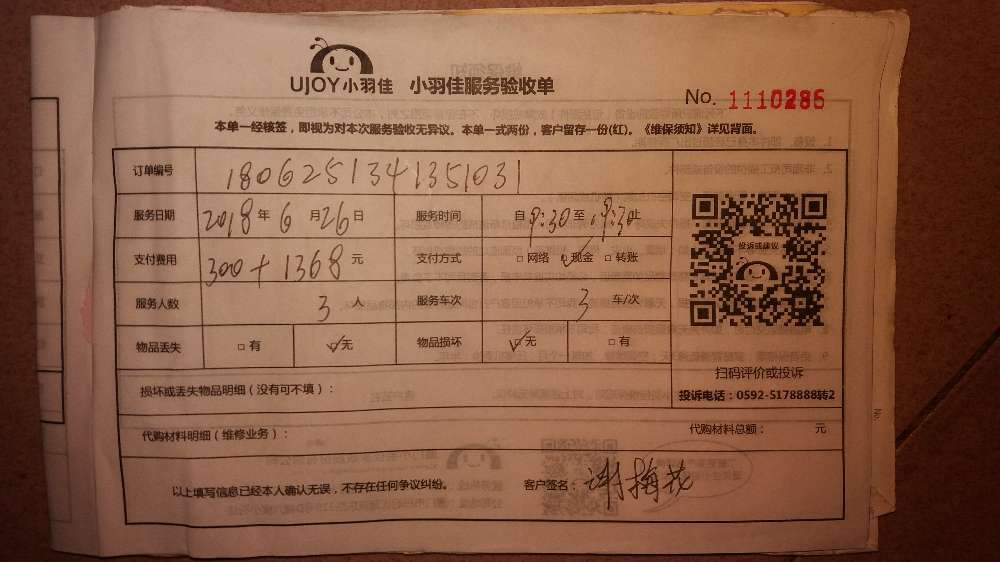 UJOY小羽佳 小羽佳服务验收单
No. 1110286
本单一经核签，即视为对本次服务验收无异议。本单一式两份，客户留存一份(红)。《维保须知》详见背面。
订单编号 1806251341351031
服务日期 2018年6月26日 服务时间 自9:30至19:30止
支付费用 300+1368元 支付方式 □网络 ☑现金 □转账
服务人数 3人 服务车次 3车/次
物品丢失 □有 ☑无 物品损坏 ☑无 □有
投诉或建议
扫码评价或投诉
投诉电话：0592-5178888转2
损坏或丢失物品明细（没有可不填）：
代购材料明细（维修业务）： 代购材料总额： 元
以上填写信息已经本人确认无误，不存在任何争议纠纷。 客户签名：谢梅花
No.